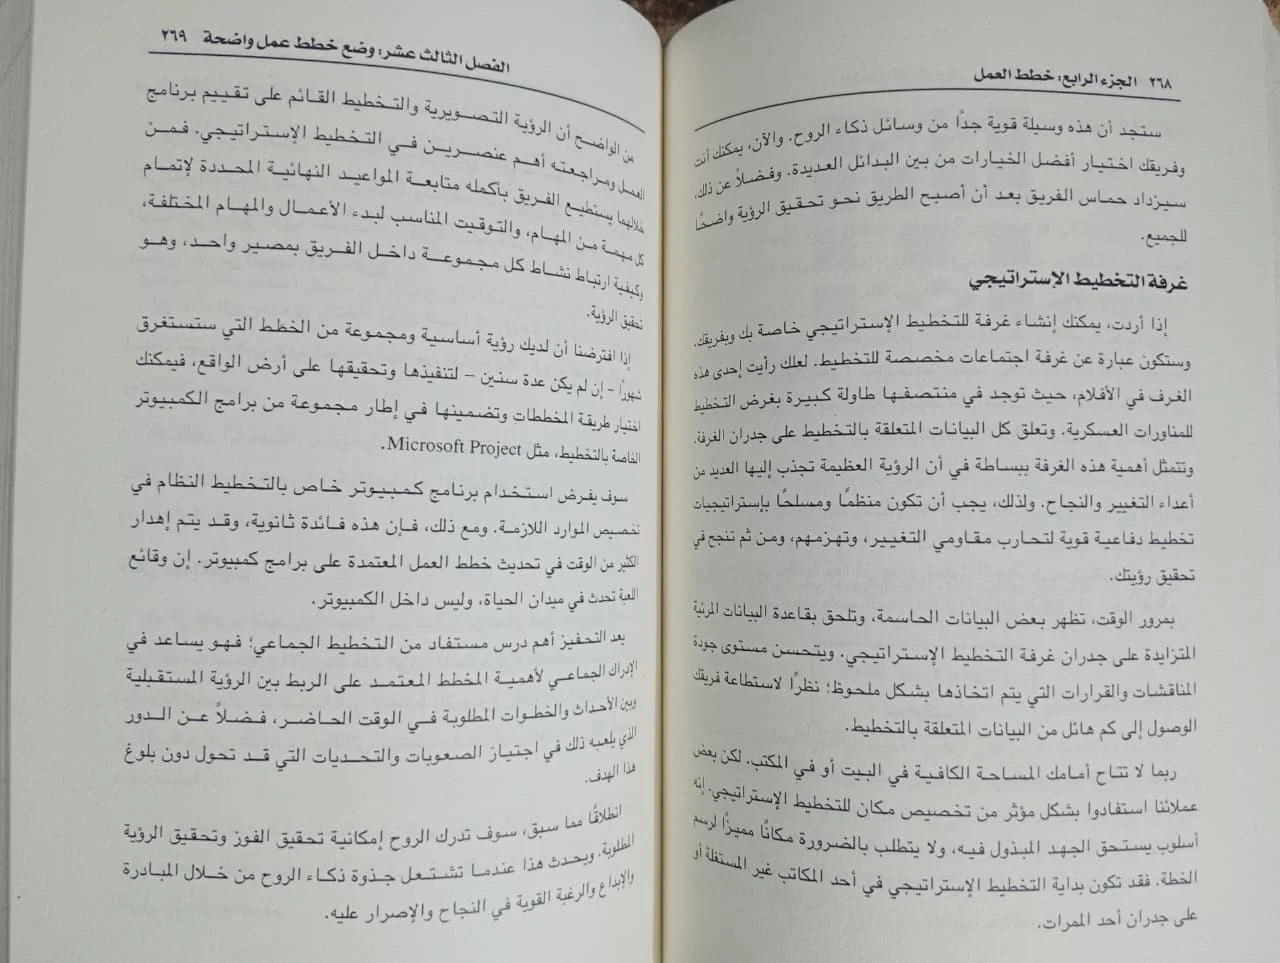 ٢٦٨ الجزء الرابع: خطط العمل
ستجد أن هذه وسيلة قوية جدًا من وسائل ذكاء الروح. والآن، يمكنك أنت
وفريقك اختيار أفضل الخيارات من بين البدائل العديدة. وفضلاً عن ذلك،
سيزداد حماس الفريق بعد أن أصبح الطريق نحو تحقيق الرؤية واضحًا
للجميع.
غرفة التخطيط الإستراتيجي
إذا أردت، يمكنك إنشاء غرفة للتخطيط الإستراتيجي خاصة بك وبفريقك.
وستكون عبارة عن غرفة اجتماعات مخصصة للتخطيط. لعلك رأيت إحدى هذه
الغرف في الأفلام، حيث توجد في منتصفها طاولة كبيرة بغرض التخطيط
للمناورات العسكرية. وتعلق كل البيانات المتعلقة بالتخطيط على جدران الغرفة.
وتتمثل أهمية هذه الغرفة ببساطة في أن الرؤية العظيمة تجذب إليها العديد من
أعداء التغيير والنجاح. ولذلك، يجب أن تكون منظمًا ومسلحًا بإستراتيجيات
تخطيط دفاعية قوية لتحارب مقاومي التغيير، وتهزمهم، ومن ثم تنجح في
تحقيق رؤيتك.
بمرور الوقت، تظهر بعض البيانات الحاسمة، وتلحق بقاعدة البيانات المرئية
المتزايدة على جدران غرفة التخطيط الإستراتيجي. ويتحسن مستوى جودة
المناقشات والقرارات التي يتم اتخاذها بشكل ملحوظ؛ نظرًا لاستطاعة فريقك
الوصول إلى كم هائل من البيانات المتعلقة بالتخطيط.
ربما لا تتاح أمامك المساحة الكافية في البيت أو في المكتب. لكن بعض
عملائنا استفادوا بشكل مؤثر من تخصيص مكان للتخطيط الإستراتيجي. إنه
أسلوب يستحق الجهد المبذول فيه، ولا يتطلب بالضرورة مكانًا مميزًا لرسم
الخطة. فقد تكون بداية التخطيط الإستراتيجي في أحد المكاتب غير المستغلة أو
على جدران أحد الممرات.
الفصل الثالث عشر: وضع خطط عمل واضحة ٢٦٩
من الواضح أن الرؤية التصويرية والتخطيط القائم على تقييم برنامج
العمل ومراجعته أهم عنصرين في التخطيط الإستراتيجي. فمن
خلالهما يستطيع الفريق بأكمله متابعة المواعيد النهائية المحددة لإتمام
كل مهمة من المهام، والتوقيت المناسب لبدء الأعمال والمهام المختلفة،
وكيفية ارتباط نشاط كل مجموعة داخل الفريق بمصير واحد، وهو
تحقيق الرؤية.
إذا افترضنا أن لديك رؤية أساسية ومجموعة من الخطط التي ستستغرق
شهورًا – إن لم يكن عدة سنين – لتنفيذها وتحقيقها على أرض الواقع، فيمكنك
اختيار طريقة المخططات وتضمينها في إطار مجموعة من برامج الكمبيوتر
الخاصة بالتخطيط، مثل Microsoft Project.
سوف يفرض استخدام برنامج كمبيوتر خاص بالتخطيط النظام في
تخصيص الموارد اللازمة. ومع ذلك، فإن هذه فائدة ثانوية، وقد يتم إهدار
الكثير من الوقت في تحديث خطط العمل المعتمدة على برامج كمبيوتر. إن وقائع
اللعبة تحدث في ميدان الحياة، وليس داخل الكمبيوتر.
بعد التحفيز أهم درس مستفاد من التخطيط الجماعي؛ فهو يساعد في
الإدراك الجماعي لأهمية المخطط المعتمد على الربط بين الرؤية المستقبلية
وبين الأحداث والخطوات المطلوبة في الوقت الحاضر، فضلاً عن الدور
الذي يلعبه ذلك في اجتياز الصعوبات والتحديات التي قد تحول دون بلوغ
هذا الهدف.
انطلاقًا مما سبق، سوف تدرك الروح إمكانية تحقيق الفوز وتحقيق الرؤية
المطلوبة. ويحدث هذا عندما تشتعل جذوة ذكاء الروح من خلال المبادرة
والإبداع والرغبة القوية في النجاح والإصرار عليه.